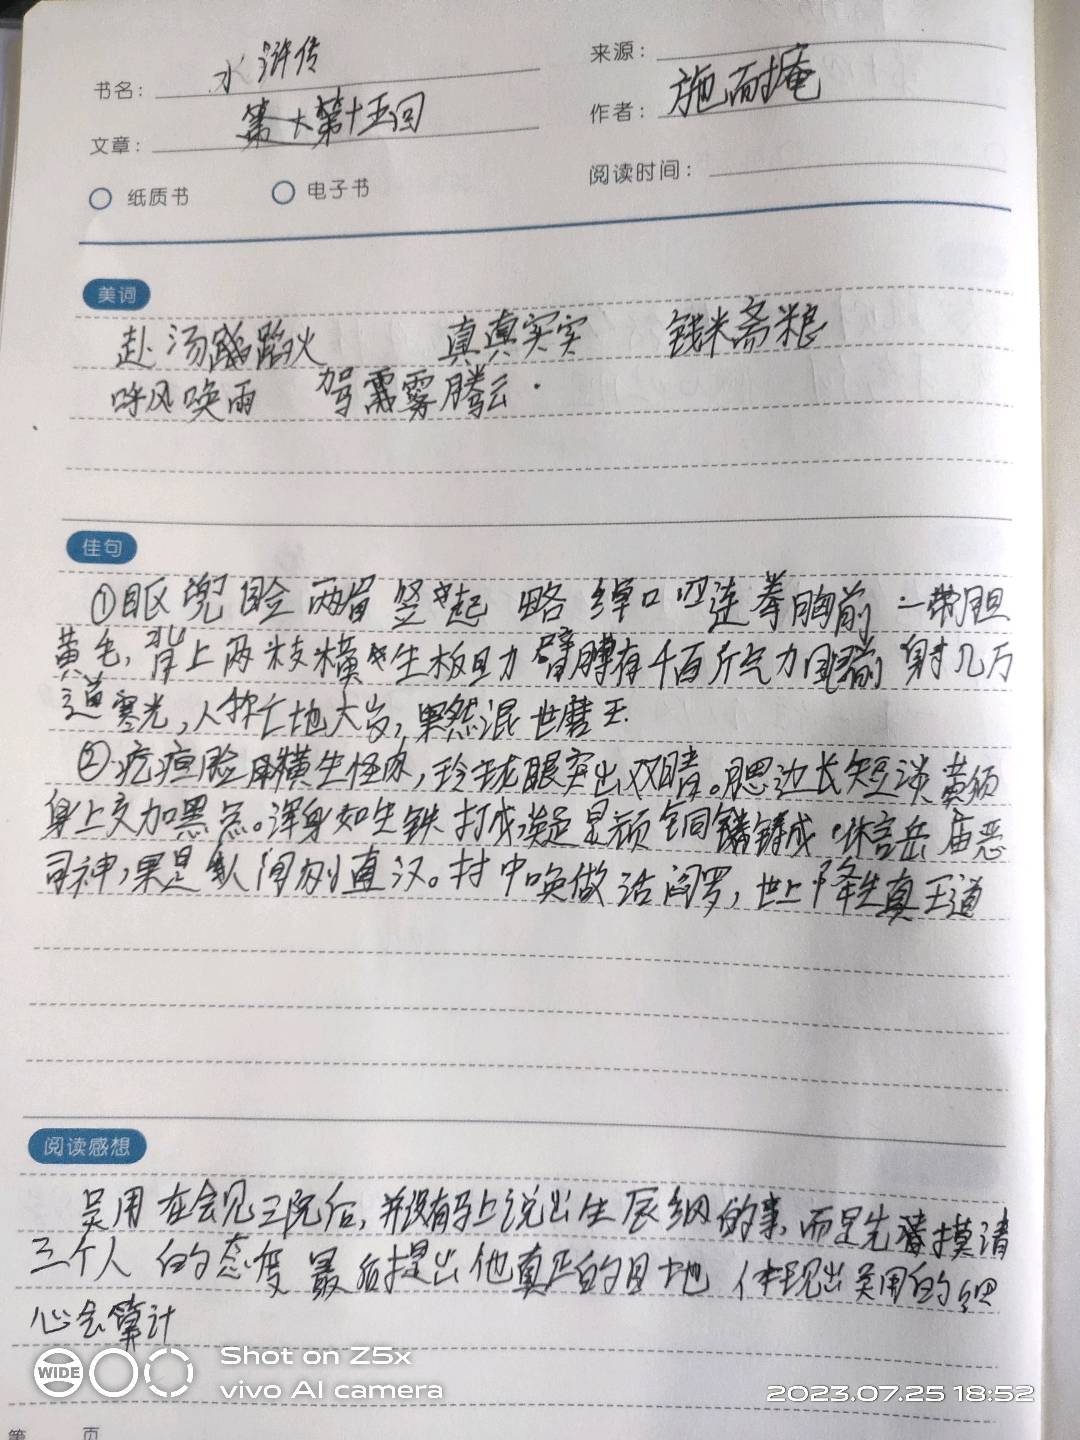 书名：水浒传
来源：
文章：第十五回
作者：施耐庵
纸质书 电子书
阅读时间：
美词
赴汤蹈火 真真实实 钱米斋粮
呼风唤雨 驾雾腾云.
佳句
①眍兜脸两眉竖起 略绰口四连拳胸前一带胆
黄毛，背上两枝横生板肋 臂膊有千百斤气力眼睛射几万
道寒光，人称亡地太岁，果然混世磨王.
②疙疸脸横生怪肉，玲珑眼突出双睛。腮边长短淡黄须
身上交加黑点。浑身如生铁打成疑是顽铜铸成.休言岳庙恶
司神，果是人间刚直汉。村中唤做活阎罗，世上降生真王道
阅读感想
吴用在会见三阮后，并没有马上说出生辰纲的事，而是先摸清
三个人的态度 最后提出他真正的目地 体现出吴用的细
心会算计
WIDE
Shot on Z5x
vivo AI camera
2023.07.25 18:52
第 页